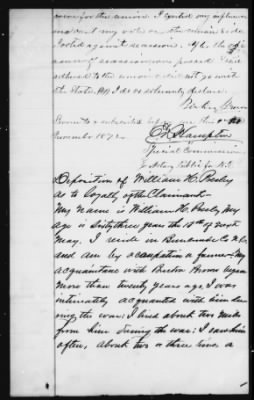 cause for the union. I exerted my influence
and cast my vote on the union side
Voted against secession. After the
adhered to the union & did not go with
the State. All I do solemnly declare.
Sworn to & subscribed before me this
November 1872
E. Hampton
Special Commissioner
& Notary Public for N.C.
Deposition of William H. Presley
as to loyalty of the Claimant.
My name is William H. Presley My
age is Sixty three years the 18th of
May. I reside in Buncombe Co N.C.
and am by occupation a farmer. My
acquaintance with began
more than twenty years ago, I was
intimately acquainted with him du
ring the war: I lived about two miles
from him during the war: I saw him
often, about two or three times, a